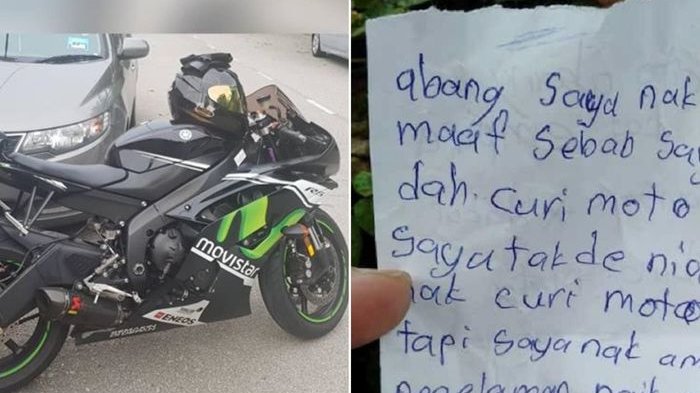 R6
movistar
ENEOS
abang saya nak
maaf sebab say
dah. curi moto
saya takde nia
nak curi motor
tapi saya nak am